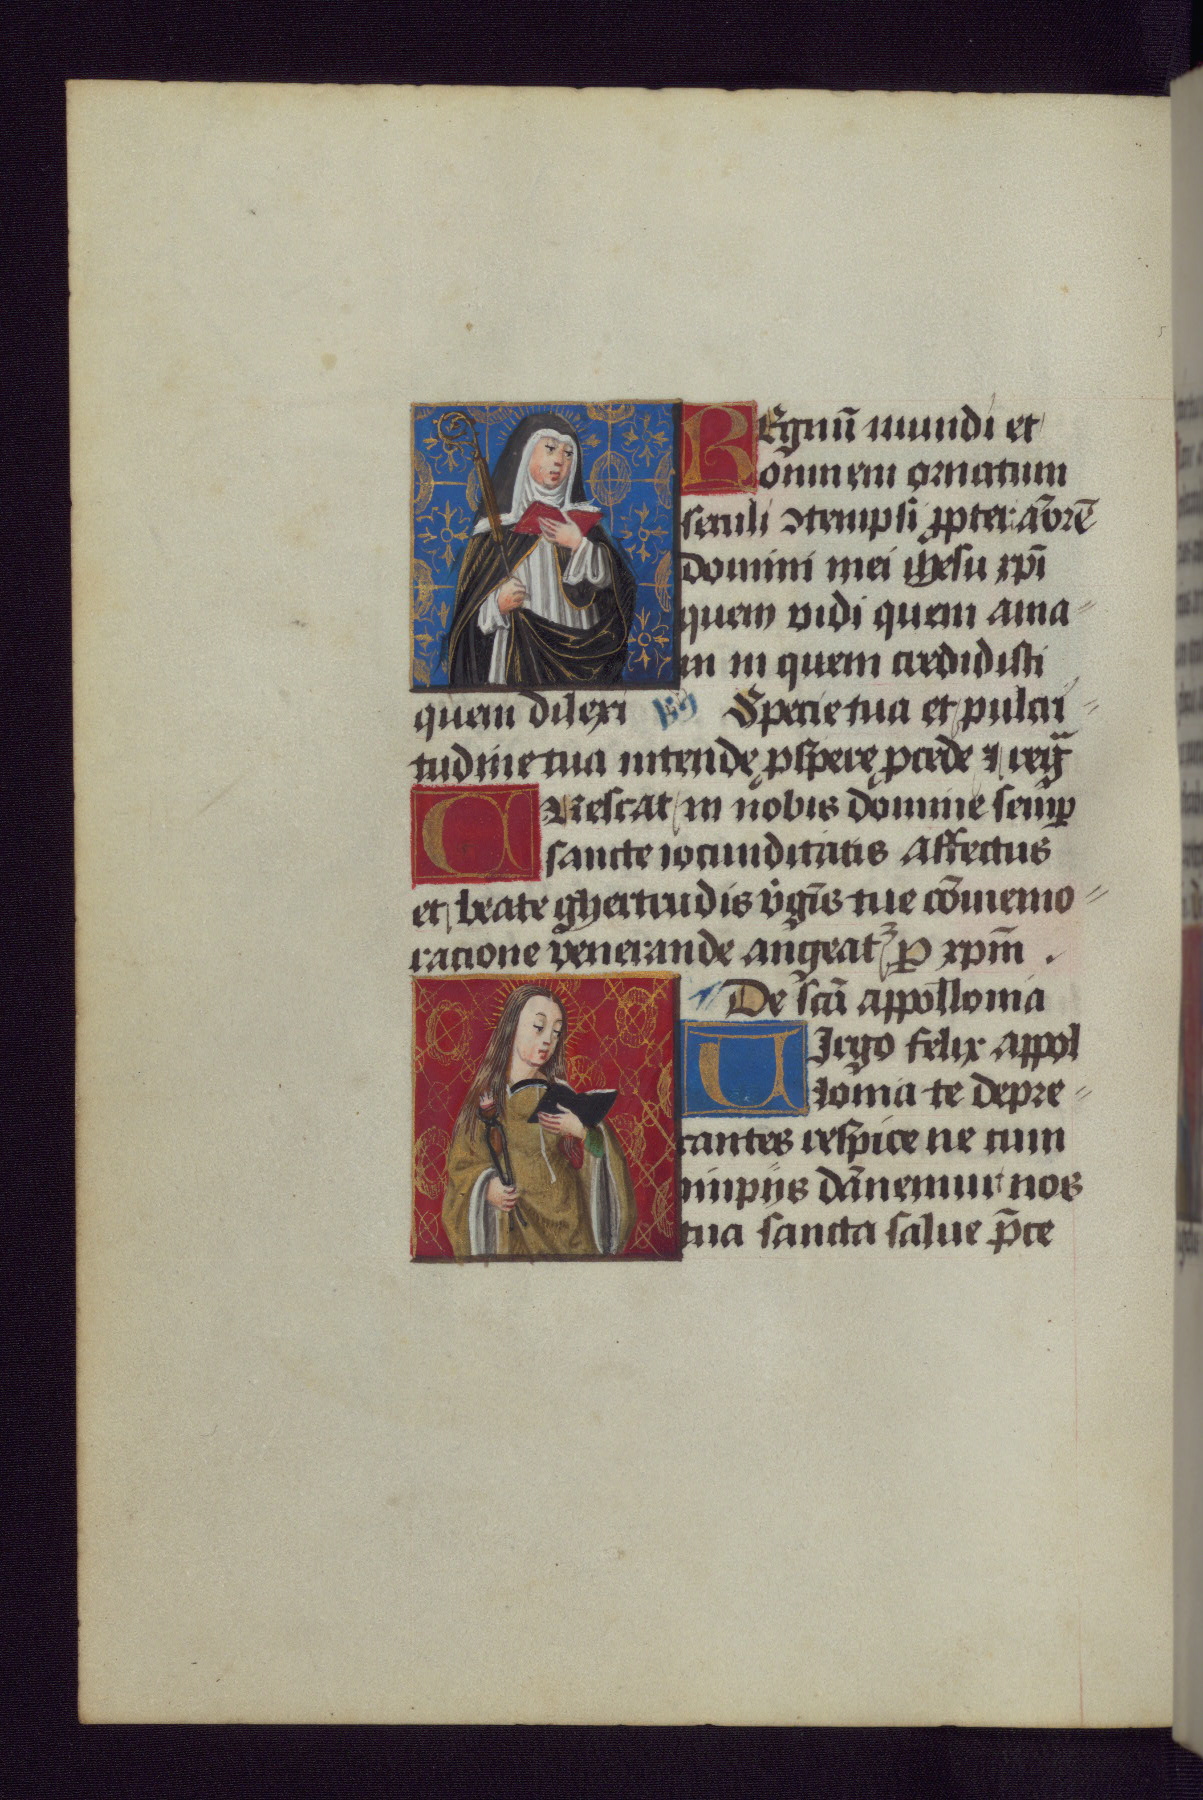 REgnū mundi et
omnem ornatum
seculi ↄtempsi ꝓpter āorē
domini mei ihesu xp̄i
quem vidi quem ama⸗
ui in quem credidisti
quem dilexi Specie tua et pulcri⸗
tudine tua intende ꝓspere ꝓcede ⁊ reḡ
CRescat in nobis domine semꝑ
sancte iocunditatis affectus
et beate ghertrudis v̄gīs tue cōmemo⸗
racione venerande augeatꝫ ꝑ xp̄m .
De sc̄a appollonia
UIrgo felix appol
lonia te depre⸗
cantes respice ne cum
impijs dānemur nos
tua sancta salue p̄ce